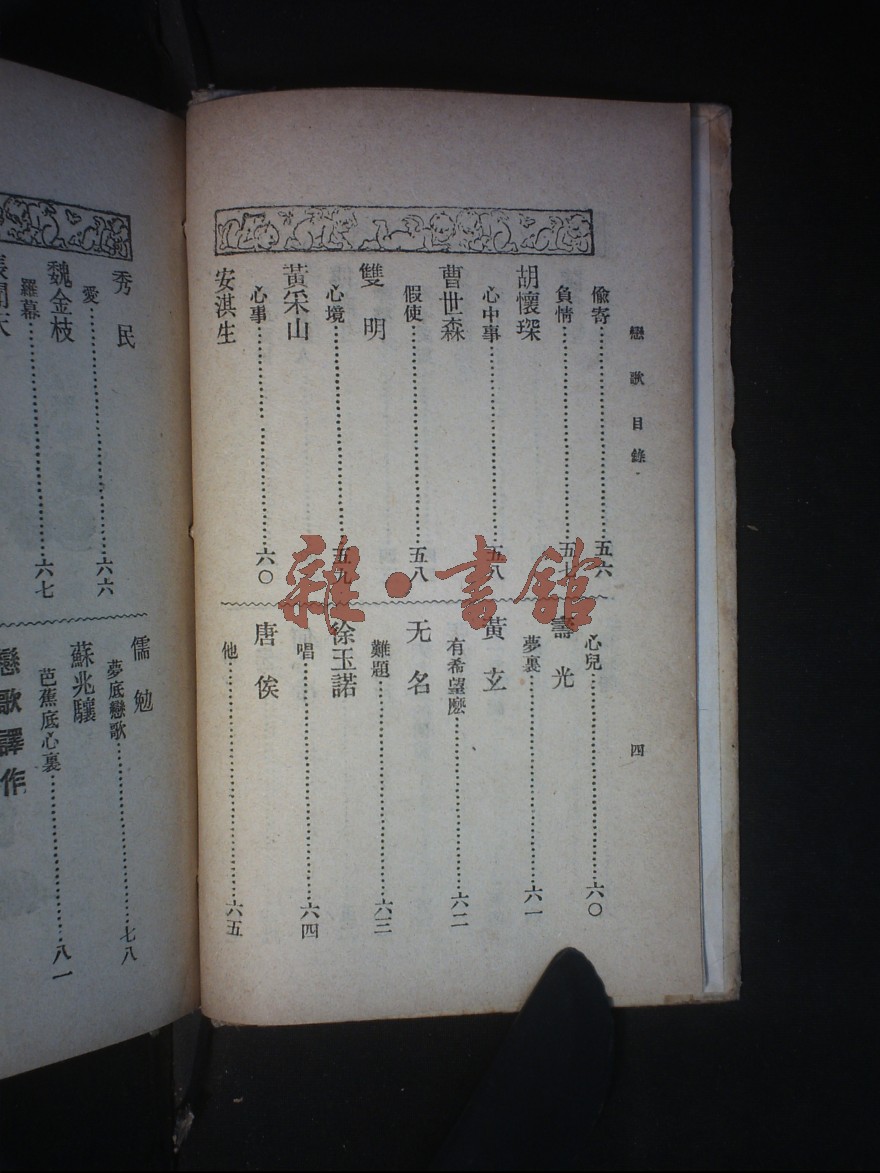 戀歌目錄
四
偸寄……五六
負情……五七
胡懷琛
心中事……五八
曹世森
假使……五八
雙明
心境……五九
黃采山
心事……六〇
安淇生
心兒……六〇
壽光
夢裏……六一
黃玄
有希望麽……六二
无名
難題……六三
徐玉諾
唱……六四
唐俟
他……六五
秀民
愛……六六
魏金枝
羅幕……六七
儒勉
夢底戀歌……七八
蘇兆驤
芭蕉底心裏……八一
戀歌譯作
雜·書館